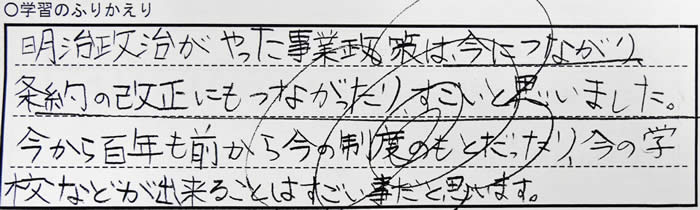 ○学習のふりかえり
明治政治がやった事業政策は、今につながり
条約の改正にもつながったりすごいと思いました。
今から百年も前から今の制度のもとだったり、今の学
校などが出来ることはすごい事だと思います。